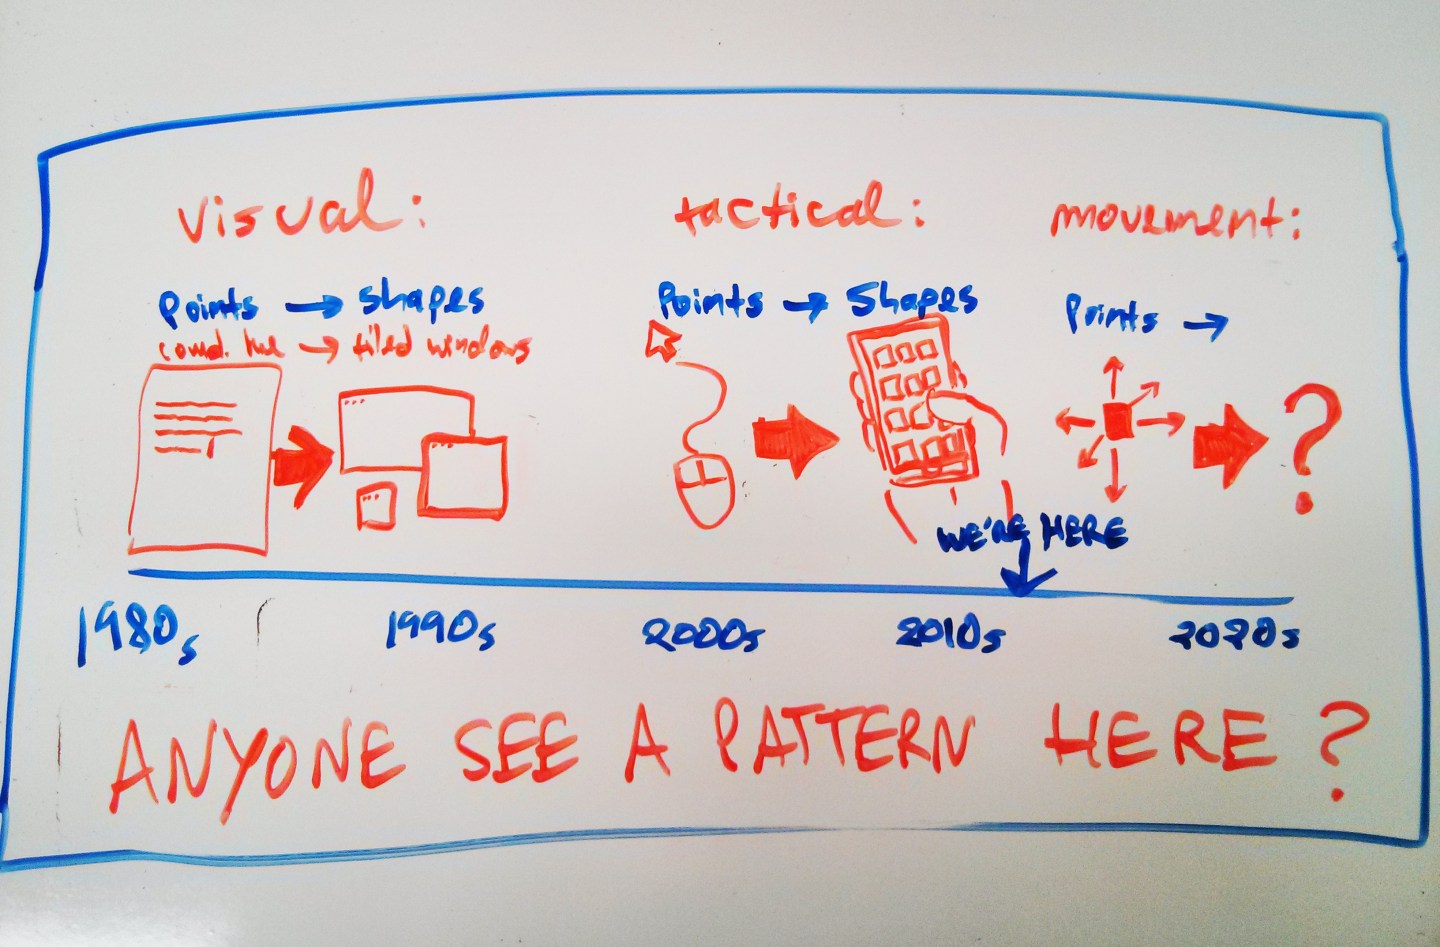 visual:
tactical:
movement:
Points → shapes
Points → Shapes
Points →
comd. line → tiled windows
WE'RE HERE
1980s
1990s
2000s
2010s
2020s
ANYONE SEE A PATTERN HERE?